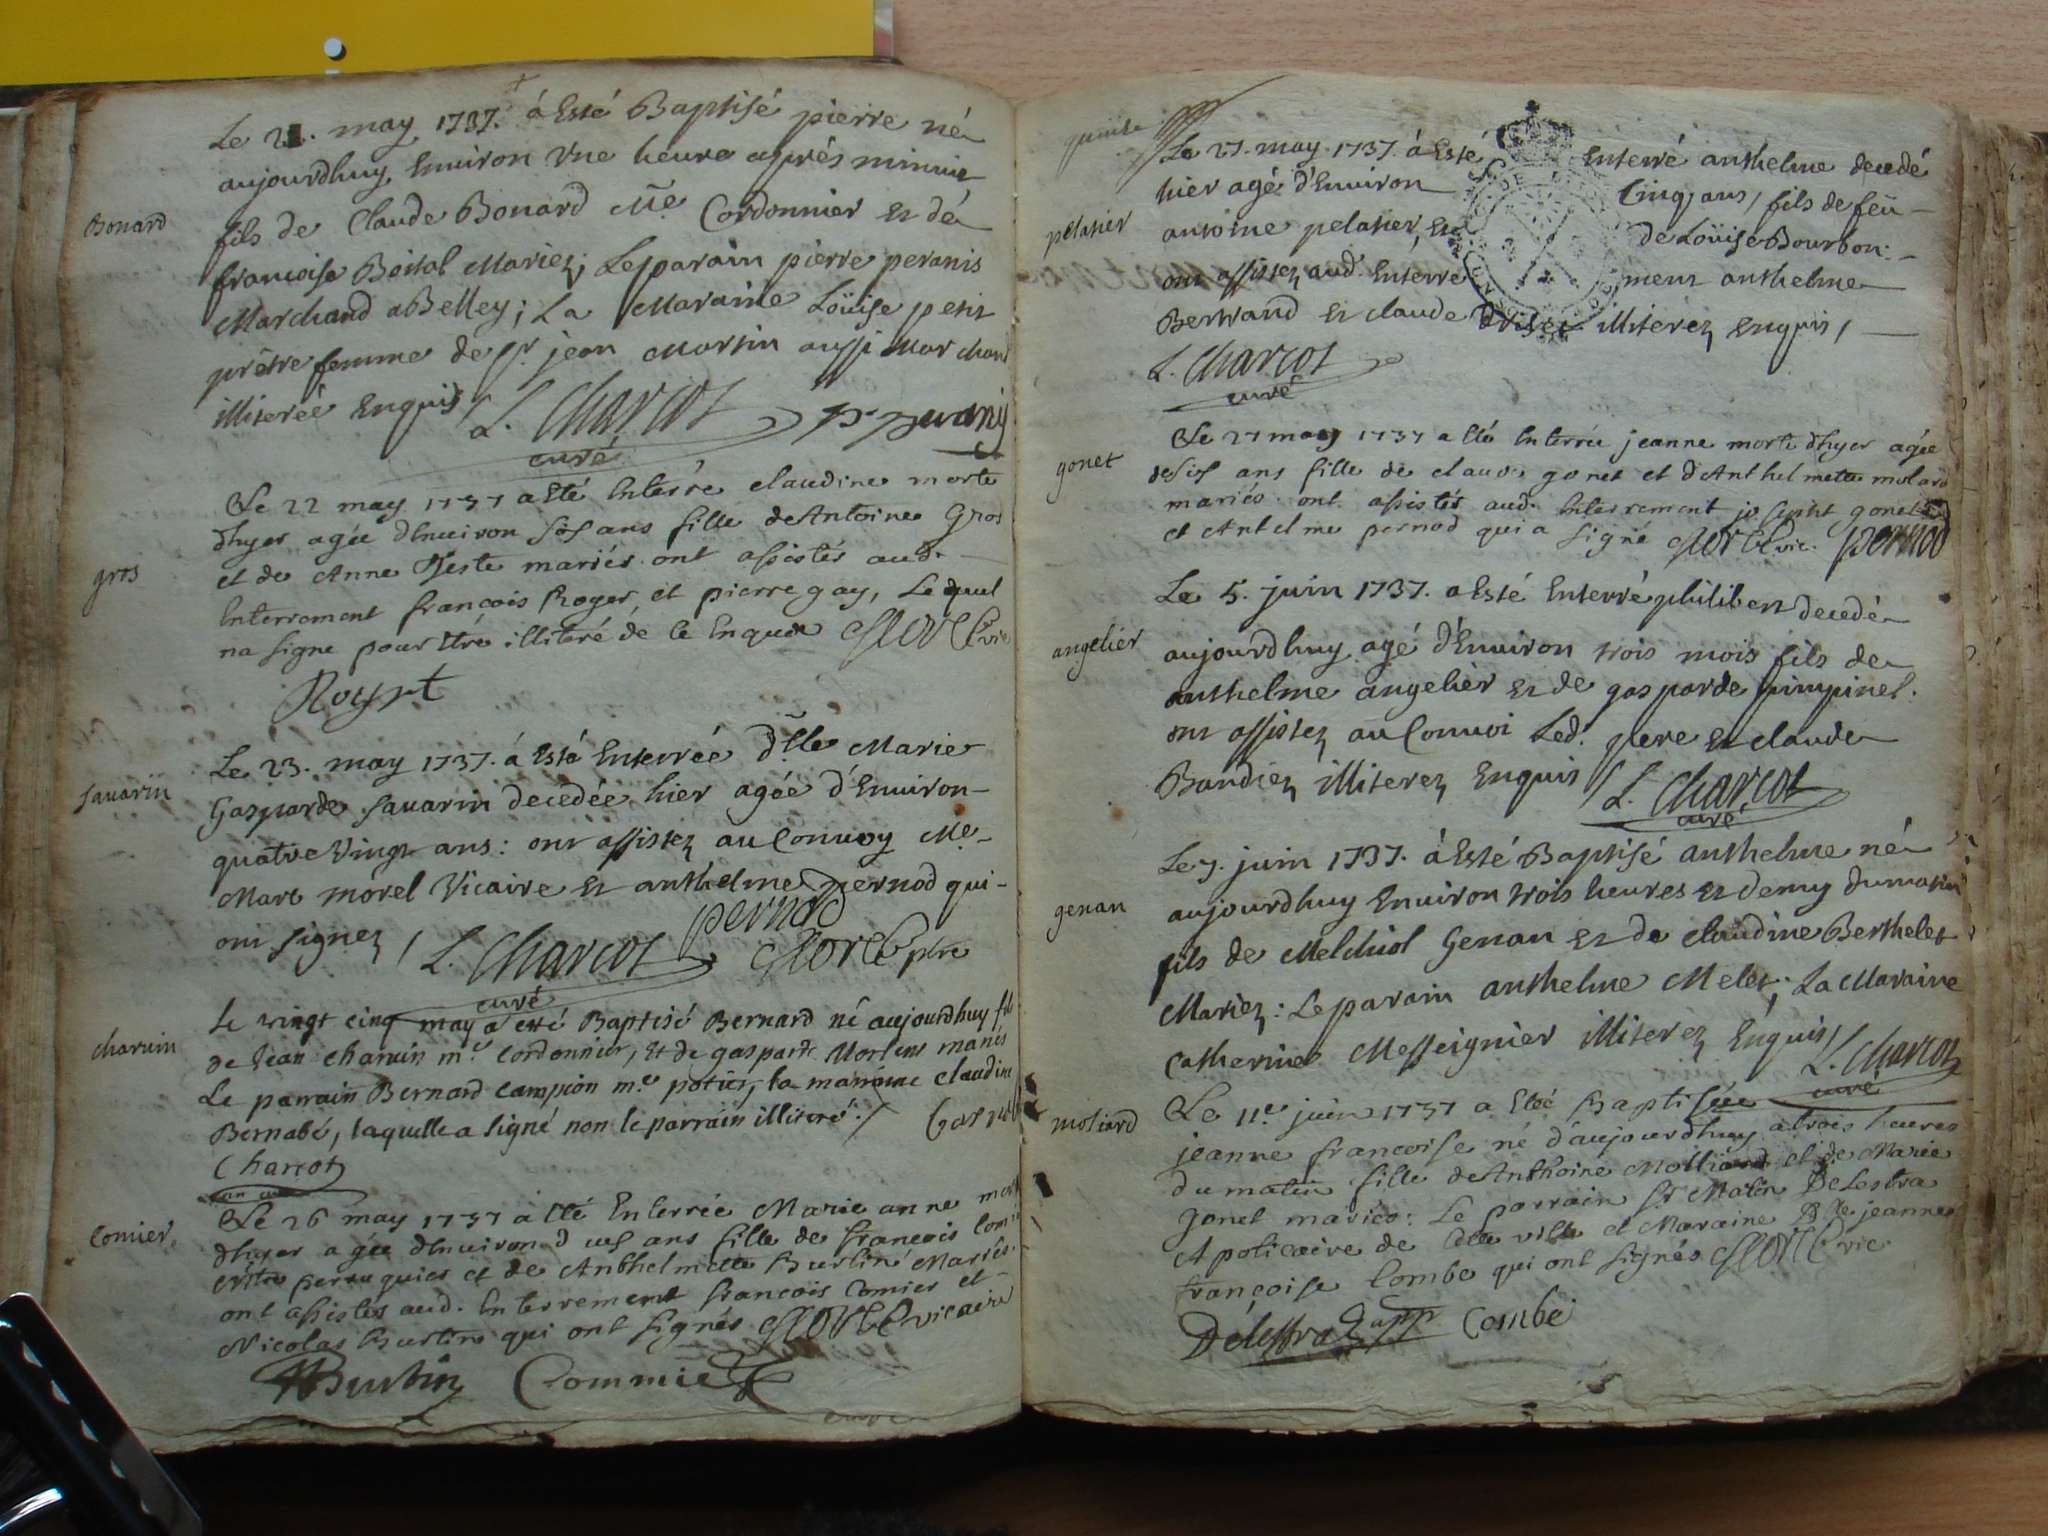 Le 21. may 1737. à Esté Baptisé pierre né
aujourdhuy Enuiron Vne heure après minuit
Bonard
fils de Claude Bonard Me. Cordonnier et de
francoise Boital Mariez; Le parain pierre peranis
Marchand a Belley; La Maraine Loüise petit
prêtre femme de Sr. jean Martin aussi Marchand
illiterée Enquis / L. Charcot
curé
Le 22 may 1737 a Eté Interré claudine morte
dhyer agée dEnuiron six ans fille de Antoine Gros
gros
et de Anne Teste mariés ont assistés aud.
Interrement françois Roger et pierre gay, Le quel
na signe pour Etre illiteré de ce Enquis Morel vic
Royet
Le 23. may 1737. à Esté Enterrée Dlle Marie
Sauarin
Gasparde Sauarin decedée hier agée d'Enuiron
quatre Vingt ans: ont assistez au Conuoy Me.
Marc morel Vicaire et anthelme pernod qui
ont signez / L. Charcot pernod Morel ptre
curé
Le vingt cinq may a eté Baptisé Bernard né aujourdhuy fils
charuin
de Jean charuin me. cordonnier, et de gasparde Morlens mariés
Le parrain Bernard Campion me. potier, la marraine claudine
Bernabé, laquelle a signé non le parrain illiteré /
Charcot
Le 26 may 1737 a Eté Enterrée Marie anne morte
Comier.
dhyer agée dEnuiron d ans fille de francois Comier
perruquier et de Anthelmette Burlin Mariés.
ont assistés aud. Enterrement francois Comier et
Nicolas Burtin qui ont signés Morel vicaire
Burtin Commier
Le 27. may 1737. à Esté Enterré anthelme decedé
hier agé d'Enuiron Cinq ans, fils de feu
pelatier
antoine pelatier, et de Loüise Bourbon:
ont assistez aud. Enterrement anthelme
Bertrand et claude illiterez Enquis /
L. Charcot
curé
Le 27 may 1737 a Eté Enterrée jeanne morte dhyer agée
gonet
de six ans fille de claude gonet et d'Anthelmette molard
mariés. ont assistés aud. Interrement joseph gonet
et Antelme pernod qui a signé Morel vic. pernod
Le 5. juin 1737. a Esté Enterré philibert decedé
angelier
aujourdhuy agé d'Enuiron trois mois fils de
anthelme angelier et de gasparde pimpinel.
ont assistez au Conuoi Led. pere et claude
Baudiez illiterez Enquis / L. Charcot
curé
Le 7. juin 1737. à Esté Baptisé anthelme né
genan
aujourdhuy Enuiron trois heures et demy du matin
fils de Melchiol Genan et de claudine Berthelet
Mariez: Le parain anthelme Melet; La Maraine
Catherine Messeignier illiterez Enquis /
L. Charcot
curé
Le 11e juin 1737 a Eté Baptisée
moliard
jeanne francoise né d'aujourdhuy a trois heures
du matin fille de Anthoine Molliard et de Marie
gonet mariés: Le parrain Sr. Matin Delestra
Apoticaire de cette ville et Maraine Dlle jeanne
françoise Combe qui ont signés Morel vic
Delestra app Combe